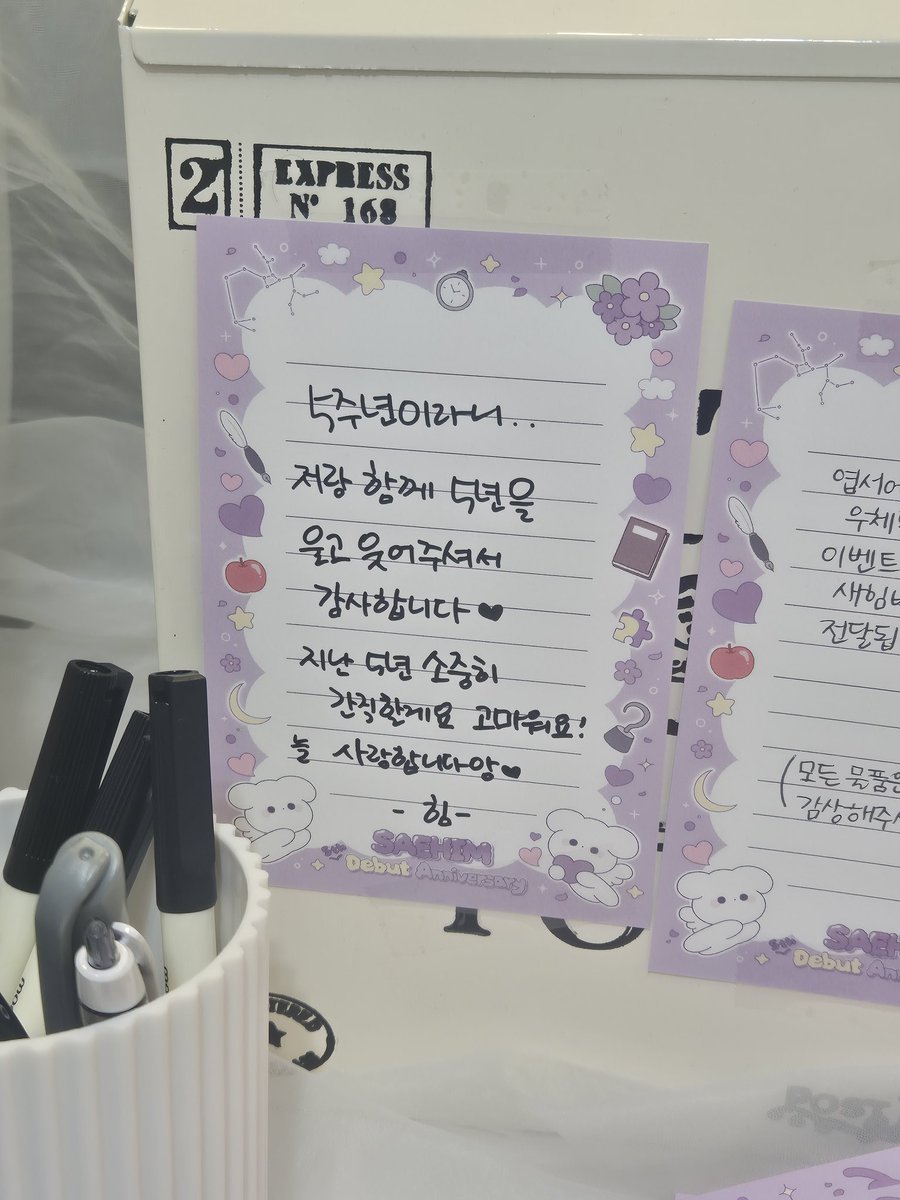 2
EXPRESS
Nº 168
5주년이라니..
저랑 함께 5년을
울고 웃어주셔서
감사합니다♥
지난 5년 소중히
간직할게요 고마워요!
늘 사랑합니다앙♥
-힘-
SAEHIM
5th Debut Anniversary
엽서
우체
이벤트
새힘
전달됩
(모든 물품은
감상해주
SAEH
5th Debut An
POST